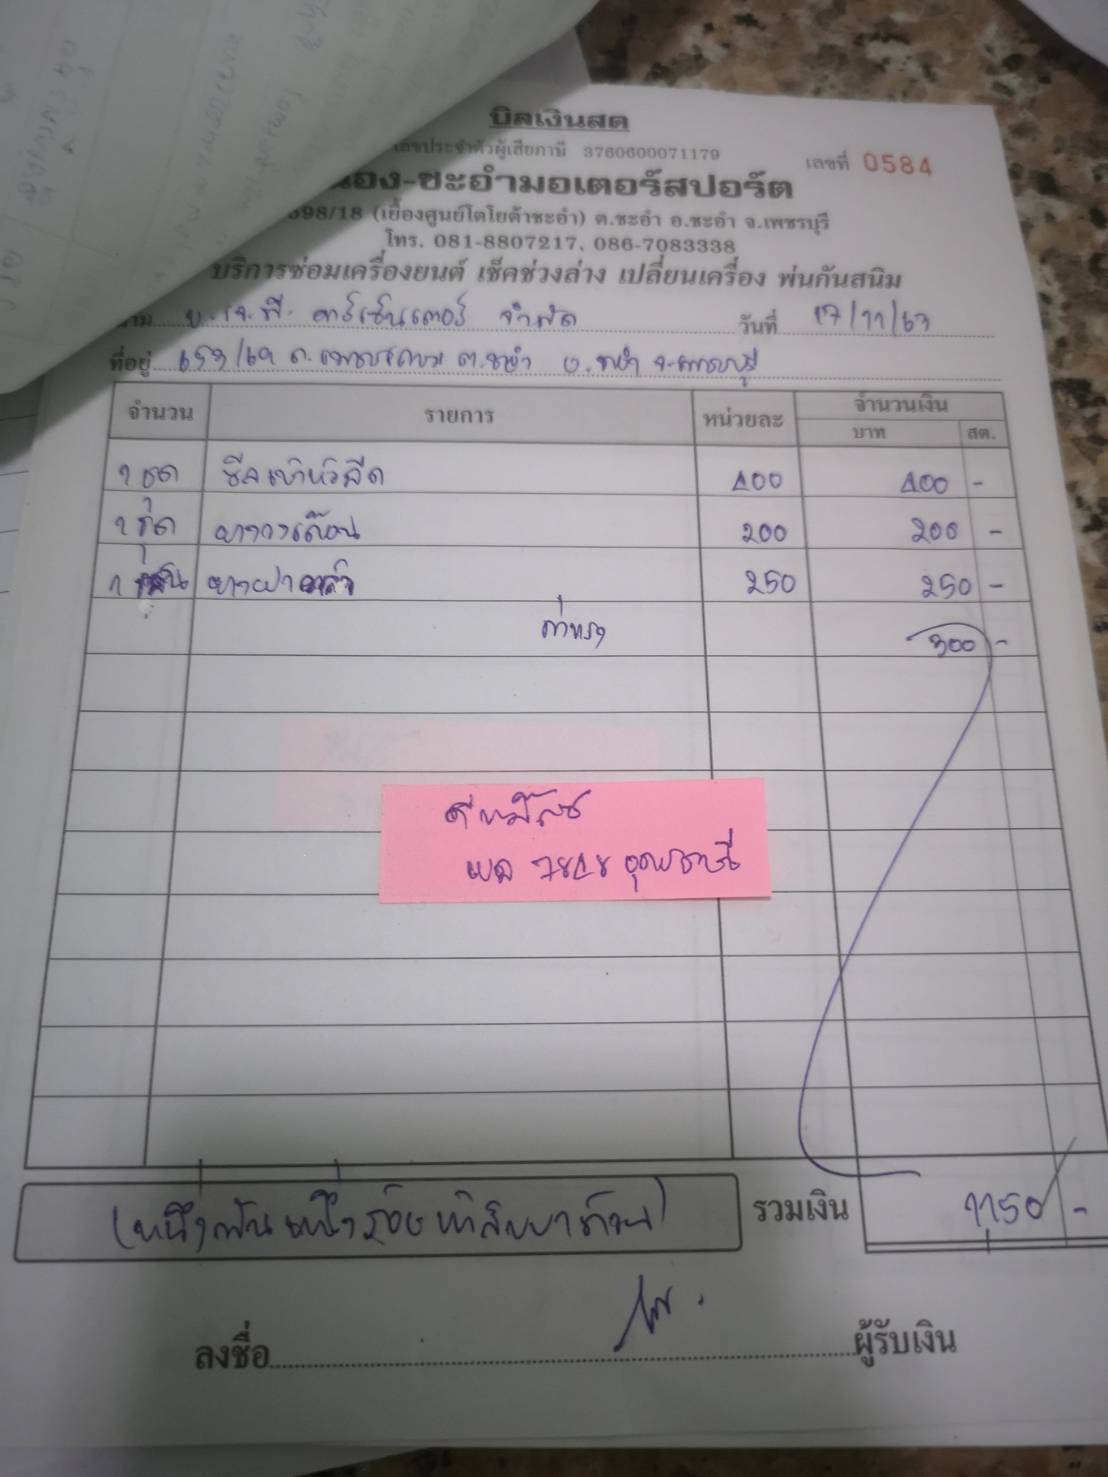 บิลเงินสด
เลขประจำตัวผู้เสียภาษี 3760600071179 เลขที่ 0584
น้อง-ชะอำมอเตอร์สปอร์ต
698/18 (เยื้องศูนย์โตโยต้าชะอำ) ต.ชะอำ อ.ชะอำ จ.เพชรบุรี
โทร. 081-8807217, 086-7083338
บริการซ่อมเครื่องยนต์ เช็คช่วงล่าง เปลี่ยนเครื่อง พ่นกันสนิม
นาม บ. เจ.พี. คาร์เซ็นเตอร์ จำกัด วันที่ 17/11/63
ที่อยู่ 653/69 ถ. เพชรเกษม ต.ชะอำ อ.ชะอำ จ.เพชรบุรี
จำนวน รายการ หน่วยละ จำนวนเงิน
บาท สต.
1 ชุด ซีลเบ้าหัวฉีด 400 400 -
1 ชุด 200 200 -
1 เส้น ยางฝาวาล์ว 250 250 -
ค่าแรง 300 -
ดีแม็กซ์
7848 อุดรธานี
(หนึ่งพันหนึ่งร้อยห้าสิบบาทถ้วน) รวมเงิน 1,150 -
ลงชื่อ ผู้รับเงิน